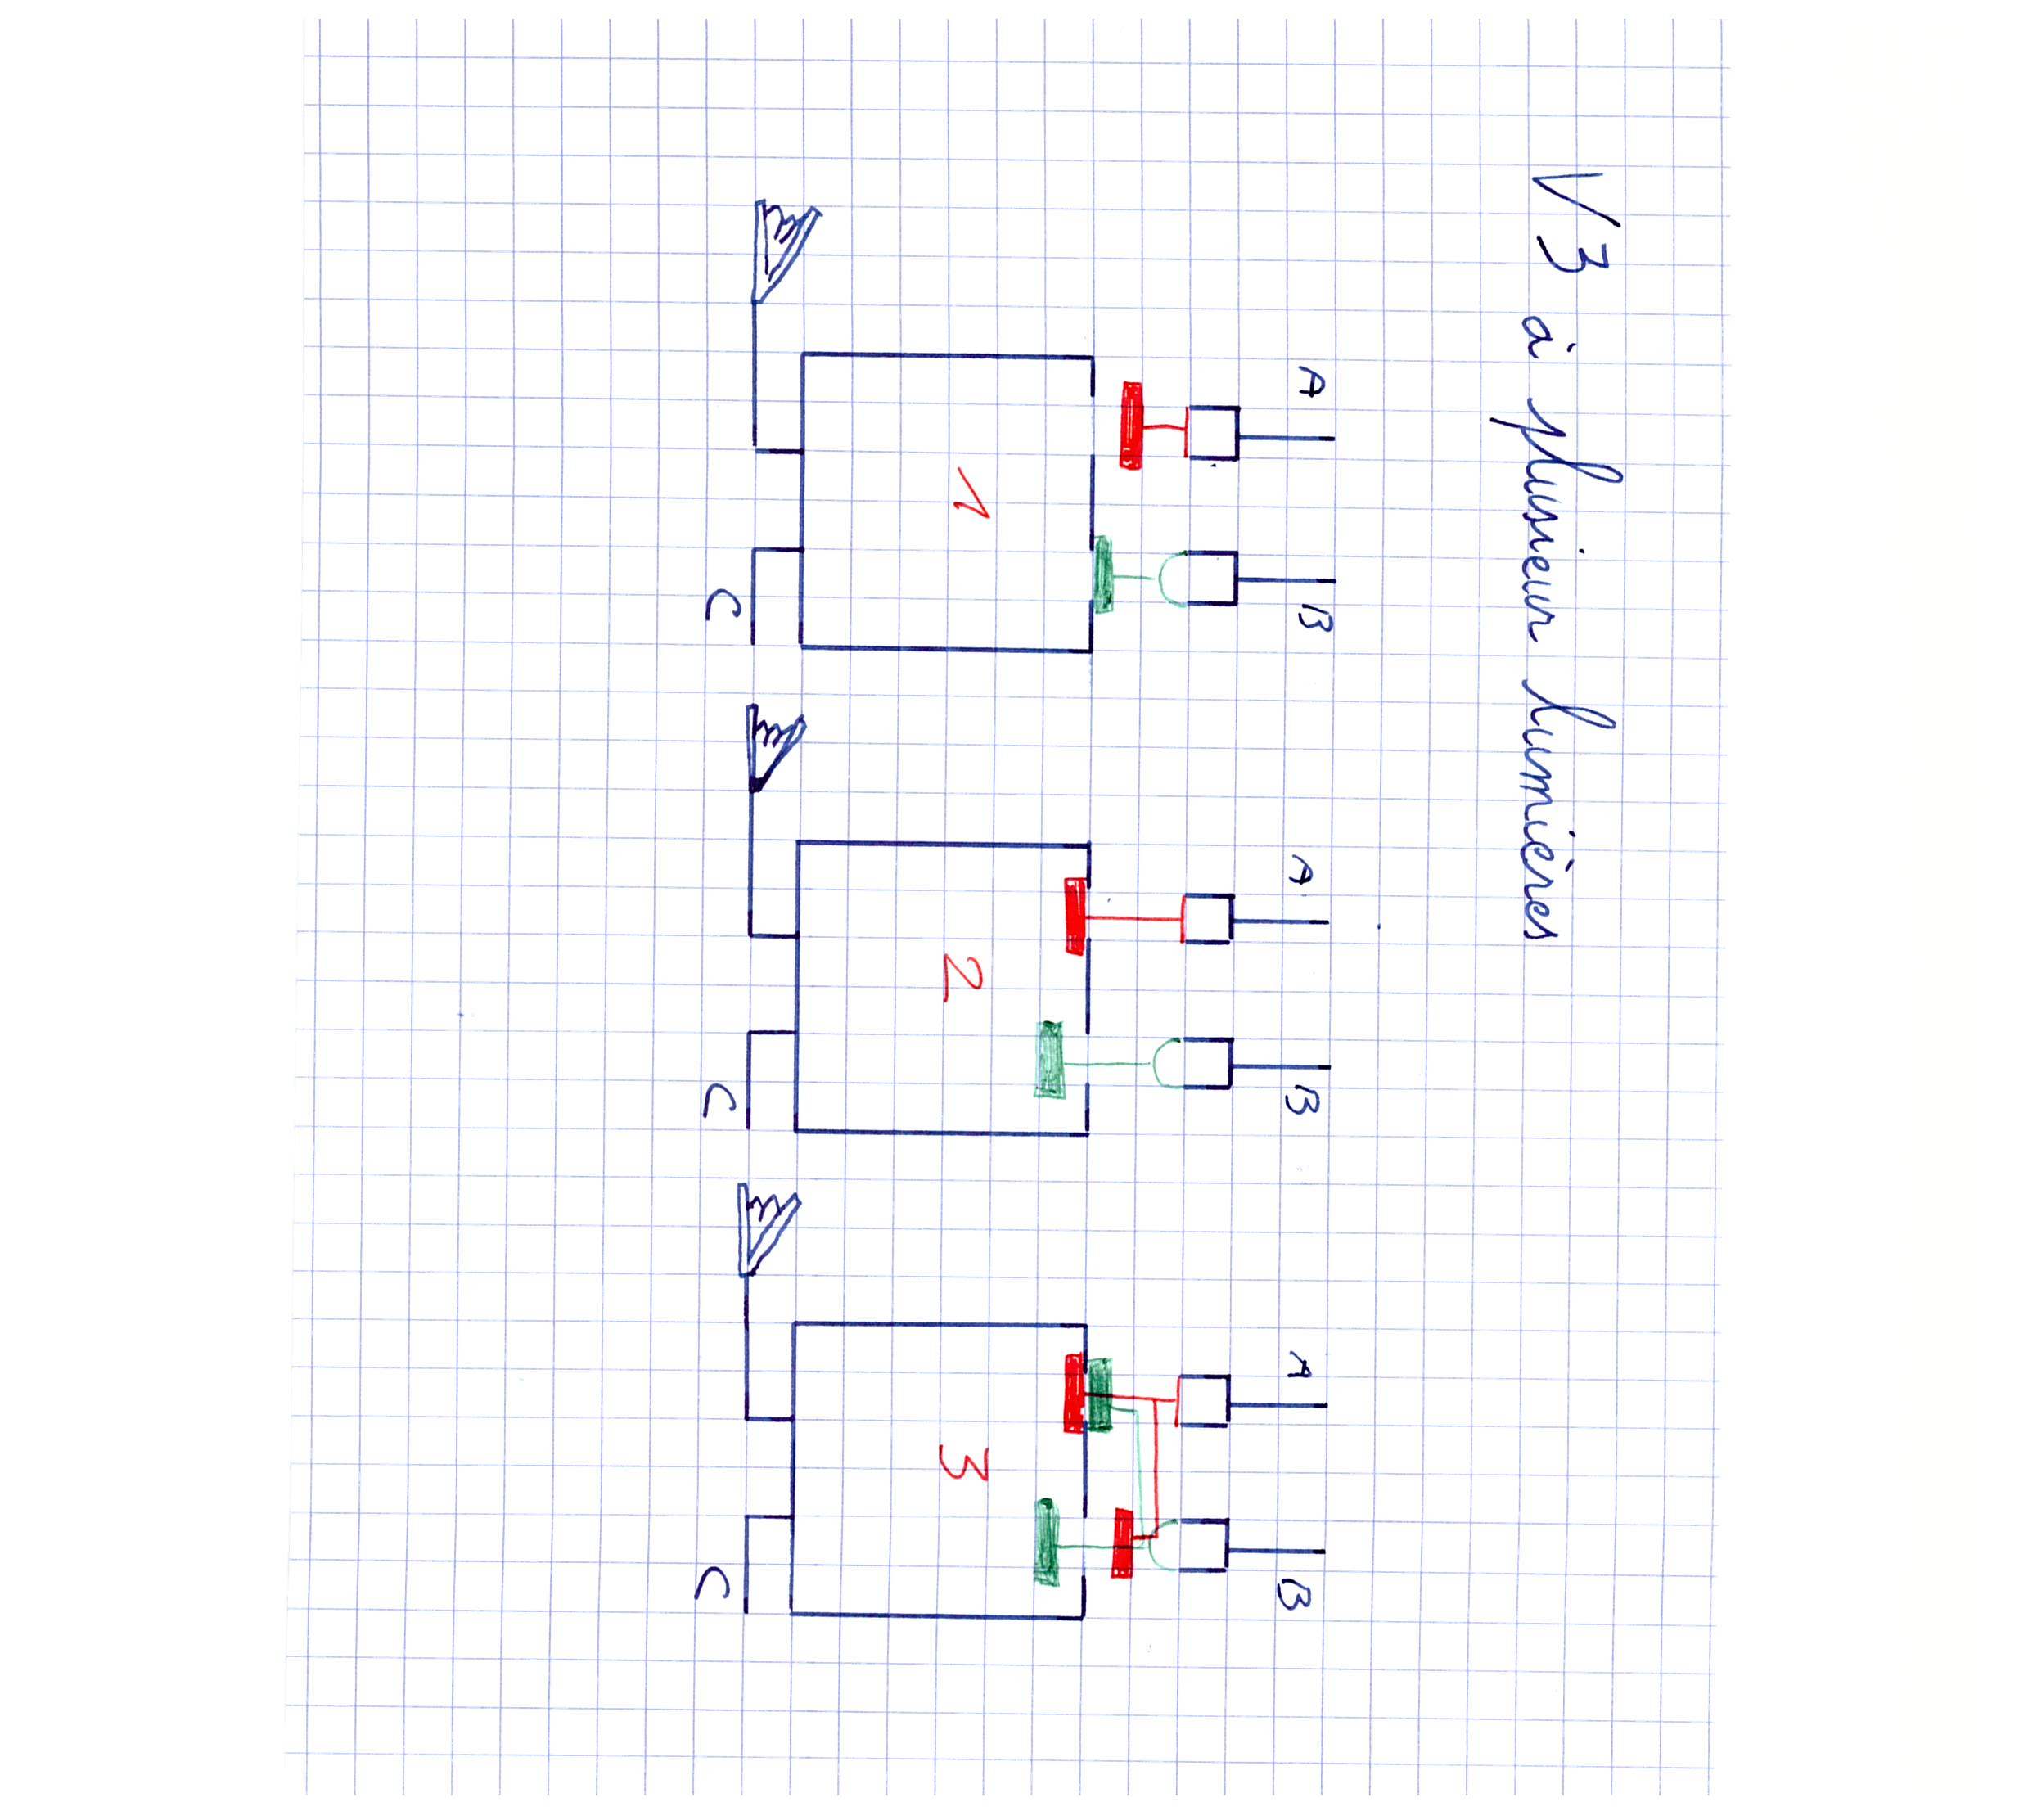 V3 à plusieur lumières
A B
1
C
A B
2
C
A B
3
C